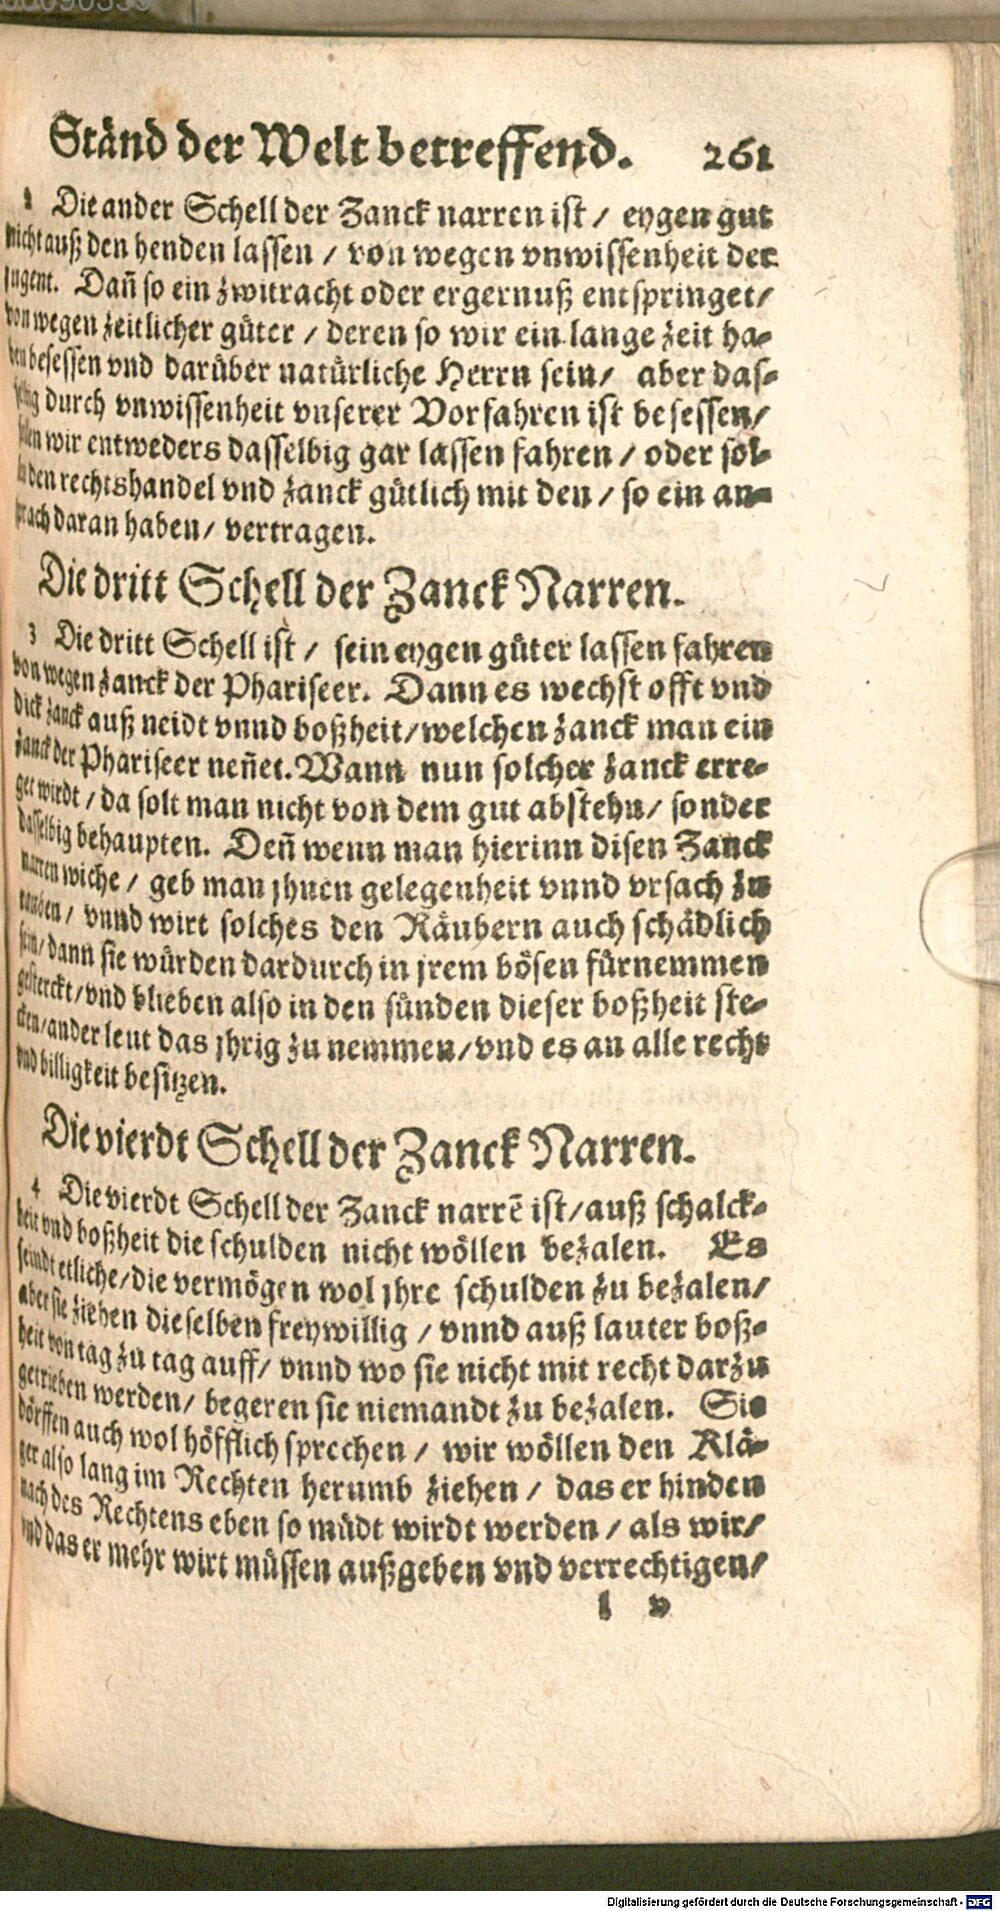 Ständ der Welt betreffend. 261
2 Die ander Schell der Zanck narren ist / eygen gut
nicht auß den henden lassen / von wegen vnwissenheit der
jugent. Dañ so ein zwitracht oder ergernuß entspringet/
von wegen zeitlicher güter / deren so wir ein lange zeit ha-
ben besessen vnd darüber natürliche Herrn sein/ aber das-
selbig durch vnwissenheit vnserer Vorfahren ist besessen/
sollen wir entweders dasselbig gar lassen fahren / oder sol-
len den rechtshandel vnd zanck gütlich mit den / so ein an-
sprach daran haben/ vertragen.
Die dritt Schell der Zanck Narren.
3 Die dritt Schell ist / sein eygen güter lassen fahren
von wegen zanck der Phariseer. Dann es wechst offt vnd
dick zanck auß neidt vnnd boßheit/welchen zanck man ein
zanck der Phariseer neñet. Wann nun solcher zanck erre-
get wirdt / da solt man nicht von dem gut abstehn/ sonder
dasselbig behaupten. Deñ wenn man hierinn disen Zanck
narren wiche / geb man jhnen gelegenheit vnnd vrsach zu
rauben / vnnd wirt solches den Räubern auch schädlich
sein/ dann sie würden dardurch in jrem bösen fürnemmen
gesterckt/vnd blieben also in den sünden dieser boßheit ste-
cken/ander leut das jhrig zu nemmen/vnd es an alle recht
vnd billigkeit besitzen.
Die vierdt Schell der Zanck Narren.
4 Die vierdt Schell der Zanck narrē ist/auß schalck-
heit vnd boßheit die schulden nicht wöllen bezalen. Es
seindt etliche/die vermögen wol jhre schulden zu bezalen/
aber sie ziehen dieselben freywillig / vnnd auß lauter boß-
heit von tag zu tag auff/ vnnd wo sie nicht mit recht darzu
getrieben werden/ begeren sie niemandt zu bezalen. Sie
dörffen auch wol höfflich sprechen / wir wöllen den Klä-
ger also lang im Rechten herumb ziehen / das er hinden
nach des Rechtens eben so müdt wirdt werden / als wir/
vnd das er mehr wirt müssen außgeben vnd verrechtigen/
l v
Digitalisierung gefördert durch die Deutsche Forschungsgemeinschaft - DFG